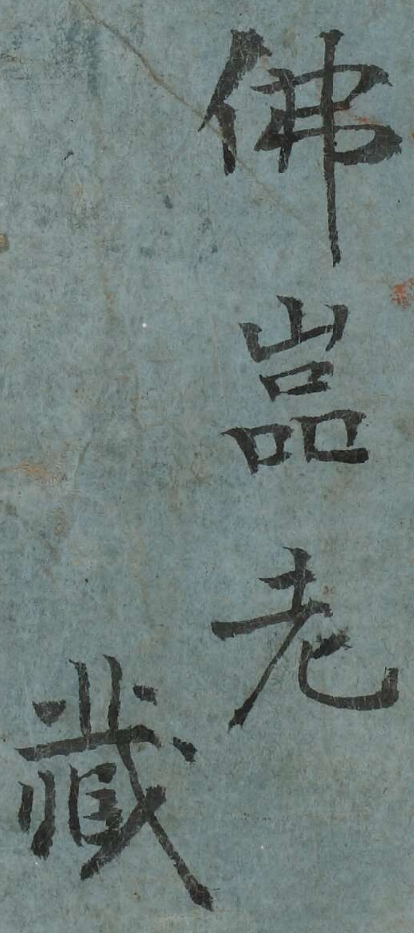 佛嵒老
藏